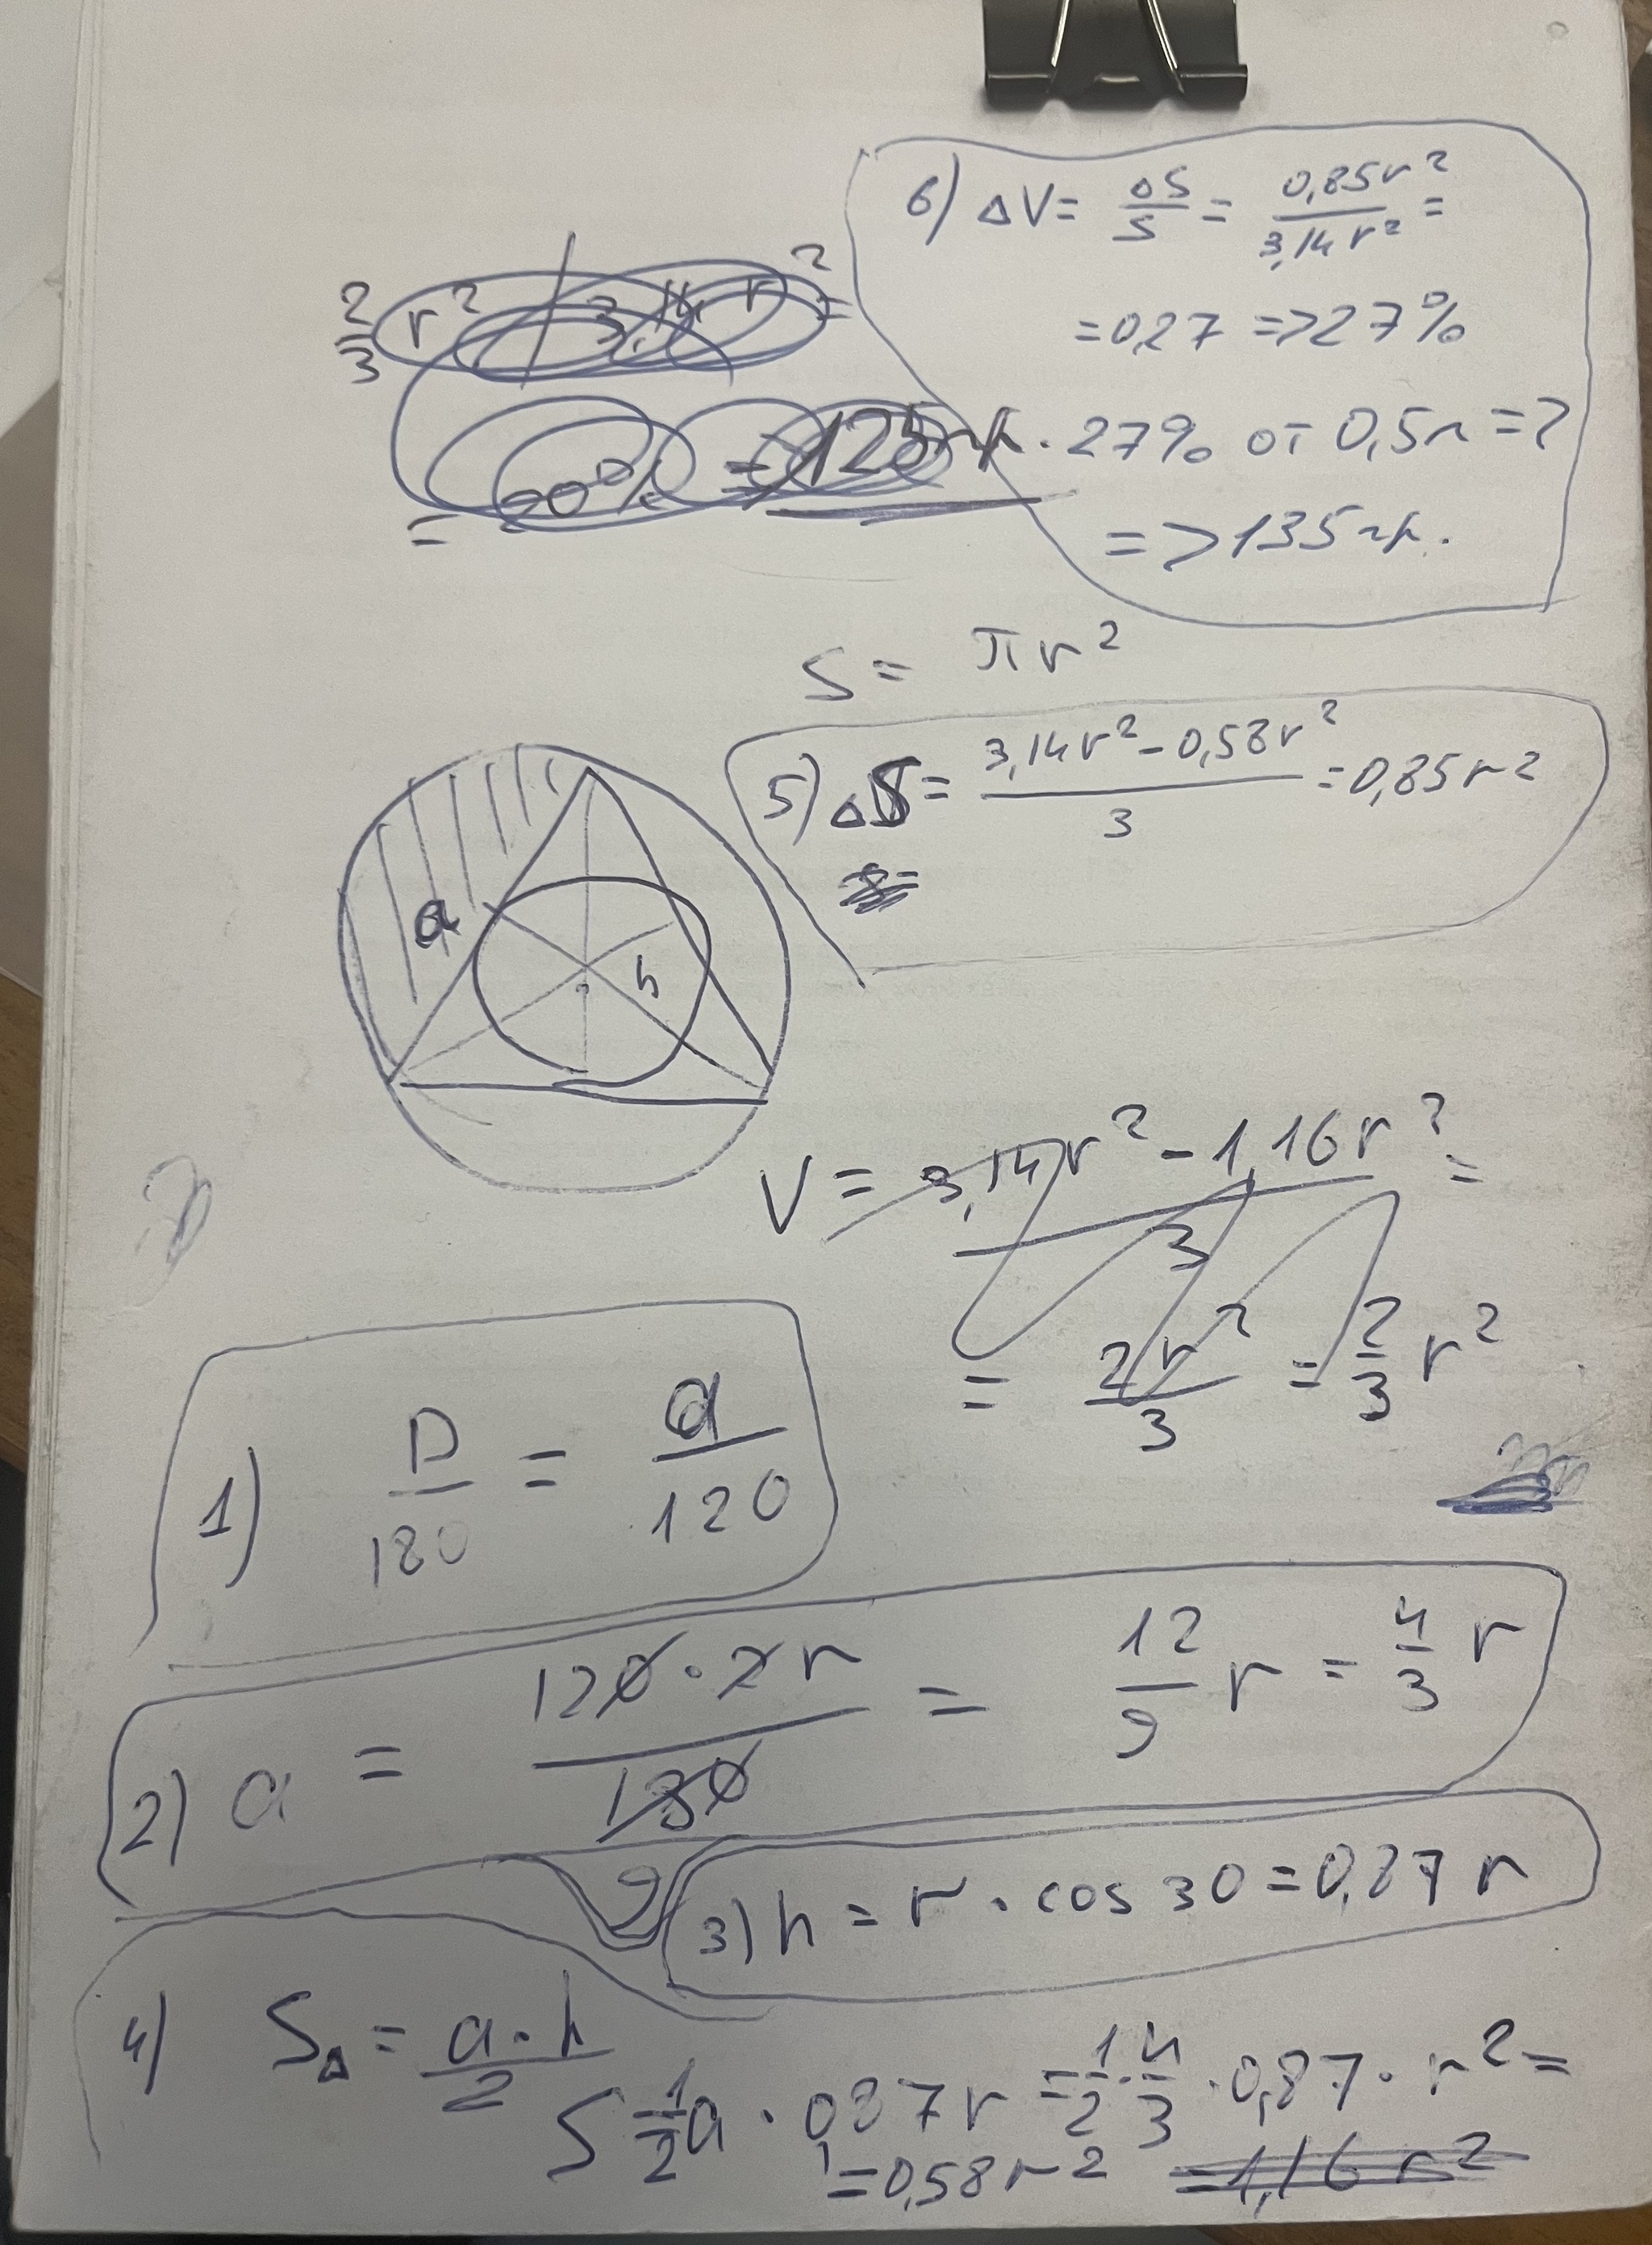 6) ΔV = ΔS/S = 0,85r²/3,14r² =
= 0,27 => 27%
27% от 0,5л = ?
=> 135 мл.
2/3 r² / 3,14 r² =
= 20% = 125 мл.
S = πr²
5) ΔS = (3,14r² - 0,58r²)/3 = 0,85r²
S =
a
h
V = (3,14r² - 1,16r²)/3 =
= 2r²/3 = 2/3 r²
1) D/180 = a/120
2) a = 120 · 2r/180 = 12/9 r = 4/3 r
9
3) h = r · cos 30 = 0,87 r
4) S△ = a·h/2
S = 1/2 a · 0,87 r = 1/2 · 4/3 · 0,87 · r² =
= 0,58 r² = 1,16 r²